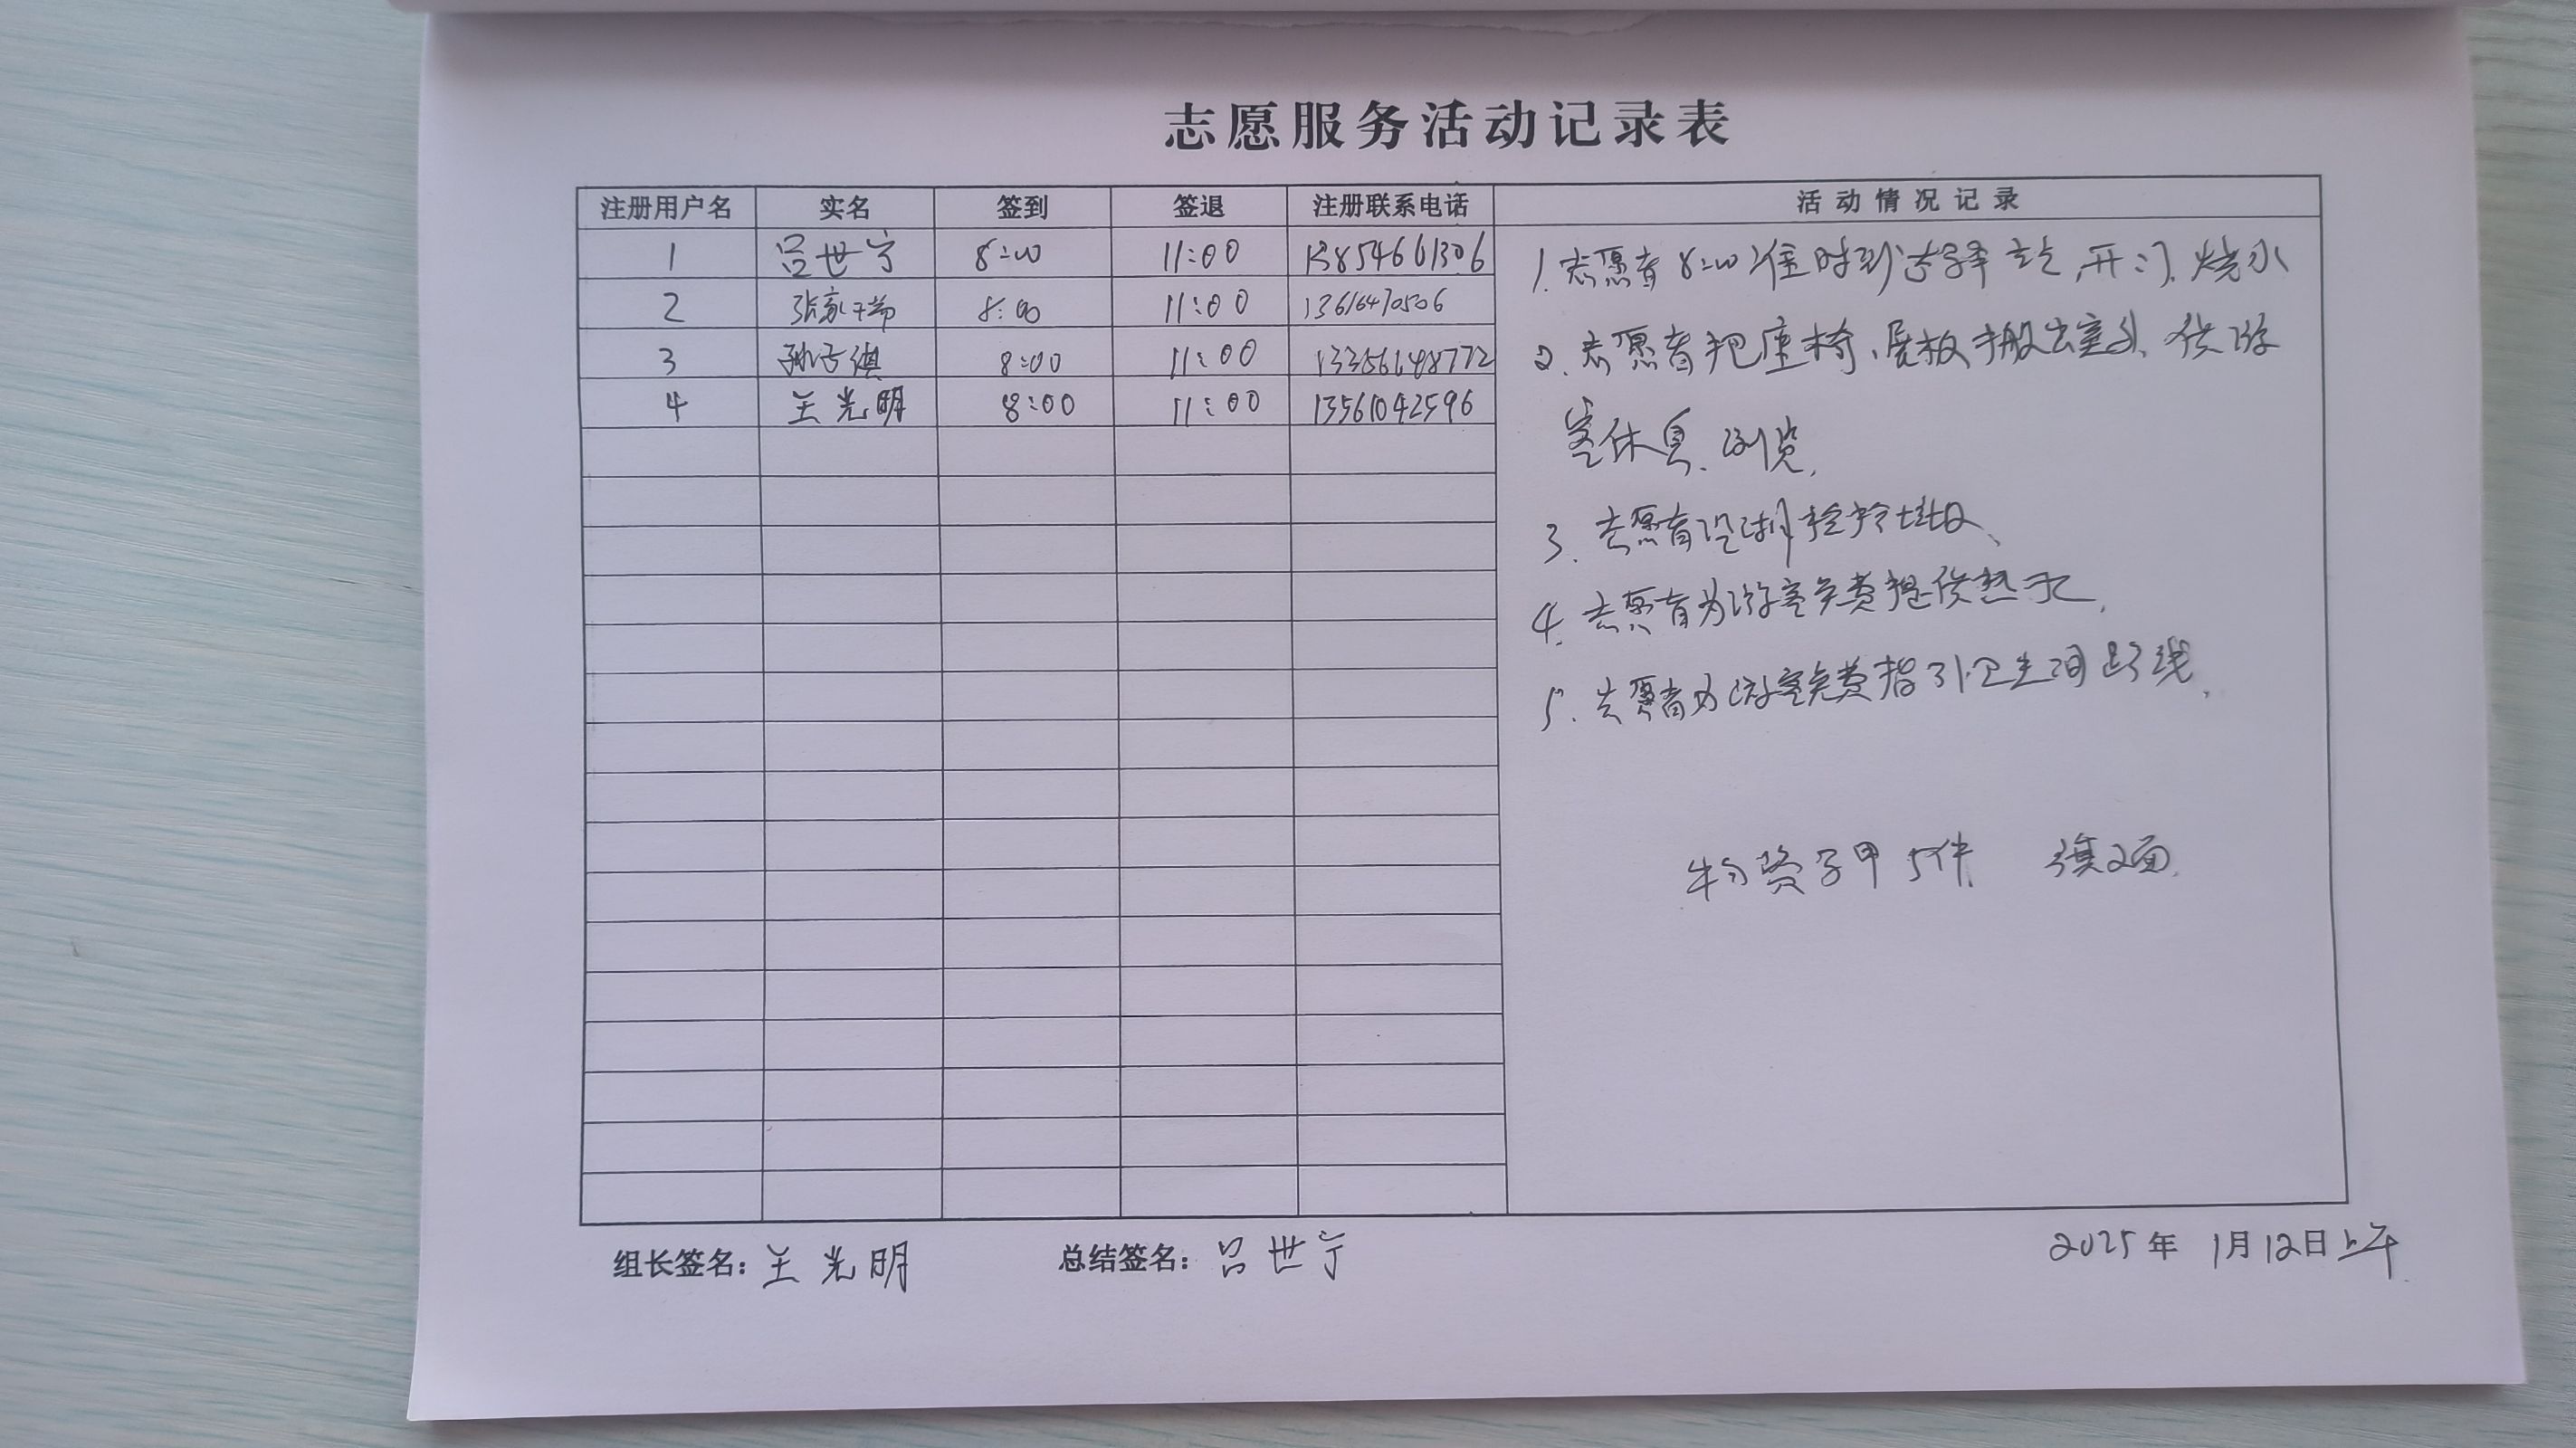 志愿服务活动记录表
注册用户名 实名 签到 签退 注册联系电话 活动情况记录
1 吕世宁 8:00 11:00 13854661306
2 张家瑞 8:00 11:00 13616470506
3 孙子淇 8:00 11:00 13356148772
4 王光明 8:00 11:00 13561042596
1. 志愿者8:00准时到达驿站,开门.烧水
2. 志愿者把座椅、展板搬出室外、供游
客休息、浏览.
3. 志愿者沿湖捡拾垃圾、
4. 志愿者为游客免费提供热水.
5. 志愿者为游客免费指引卫生间路线.
物资马甲5件 旗2面.
组长签名: 王光明 总结签名: 吕世宁 2025年 1月12日上午